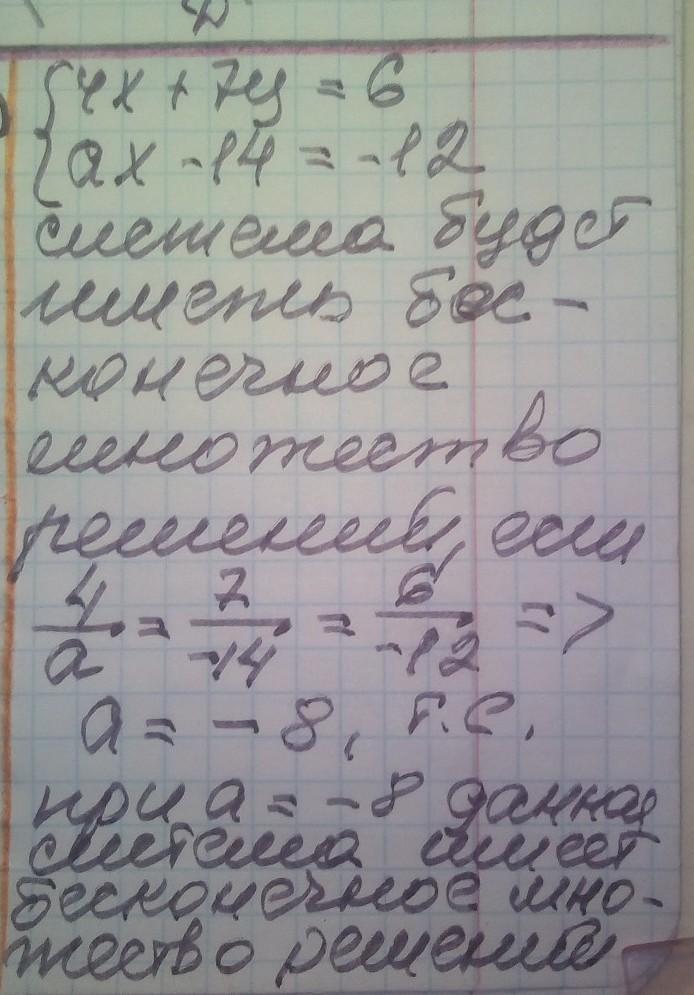 {4x + 7y = 6
{ax - 14 = -12
система будет
иметь бес-
конечное
множество
решений, если
4/a = 7/-14 = 6/-12 =>
a = - 8, т.е.
при a = -8 данная
система имеет
бесконечное мно-
жество решений